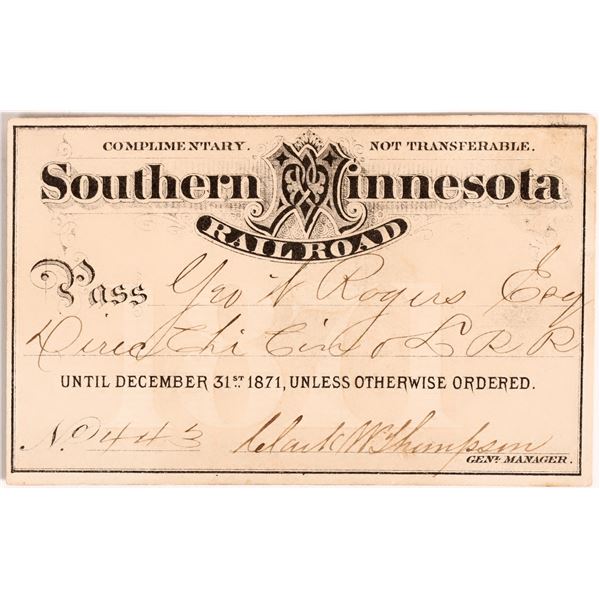 COMPLIMENTARY. NOT TRANSFERABLE.
Southern Minnesota
RAILROAD
Pass Geo W Rogers Esq
Direc Chi Cin & L R R
UNTIL DECEMBER 31ST 1871, UNLESS OTHERWISE ORDERED.
No 443 Clark W Thompson
GENL MANAGER.